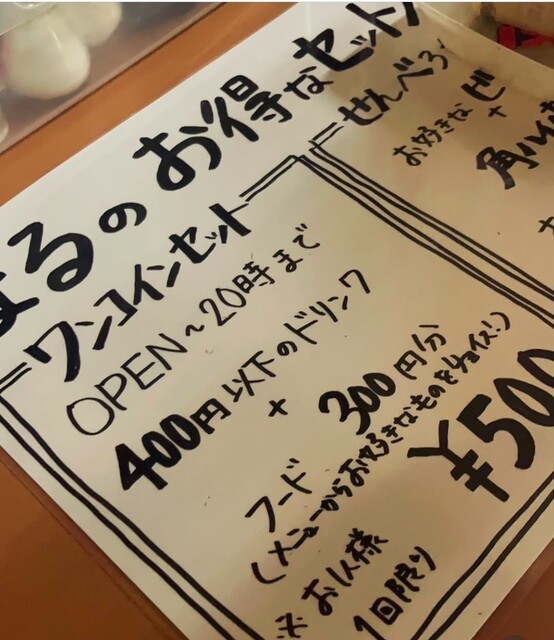 るの お得なセット
ワンコインセット
OPEN～20時まで
400円以下のドリンク
+
フード 300円分
(メニューからお好きなものをチョイス！)
¥500
※お1人様
1回限り
せんべろ
お好きなビ
+
角ハイ